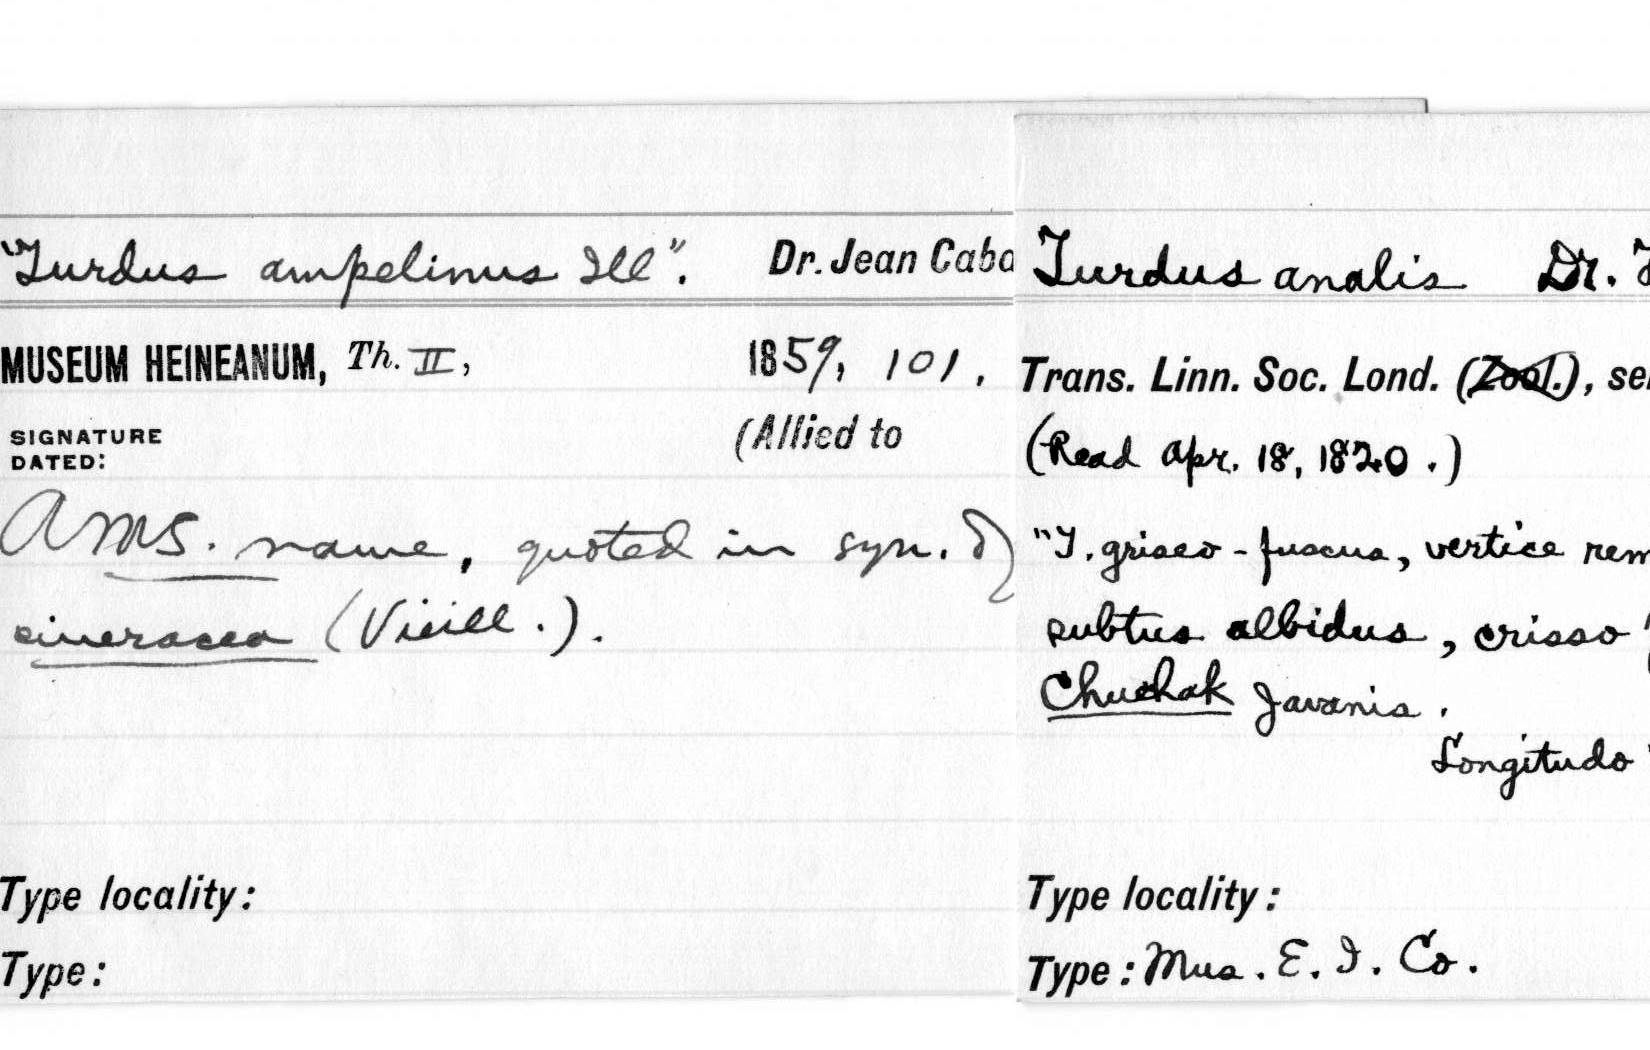 "Turdus ampelinus Ill". Dr. Jean Caba
MUSEUM HEINEANUM, Th. II, 1859, 101.
SIGNATURE DATED: (Allied to
A MS. name, quoted in syn. of
cineracea (Vieill.).
Type locality:
Type:
Turdus analis Dr.
Trans. Linn. Soc. Lond. (Zool.), se
(Read Apr. 18, 1820.)
"T. griseo-fuscus, vertice rem
subtus albidus, crisso
Chuchak Javanis.
Longitudo
Type locality:
Type: Mus. E. I. Co.